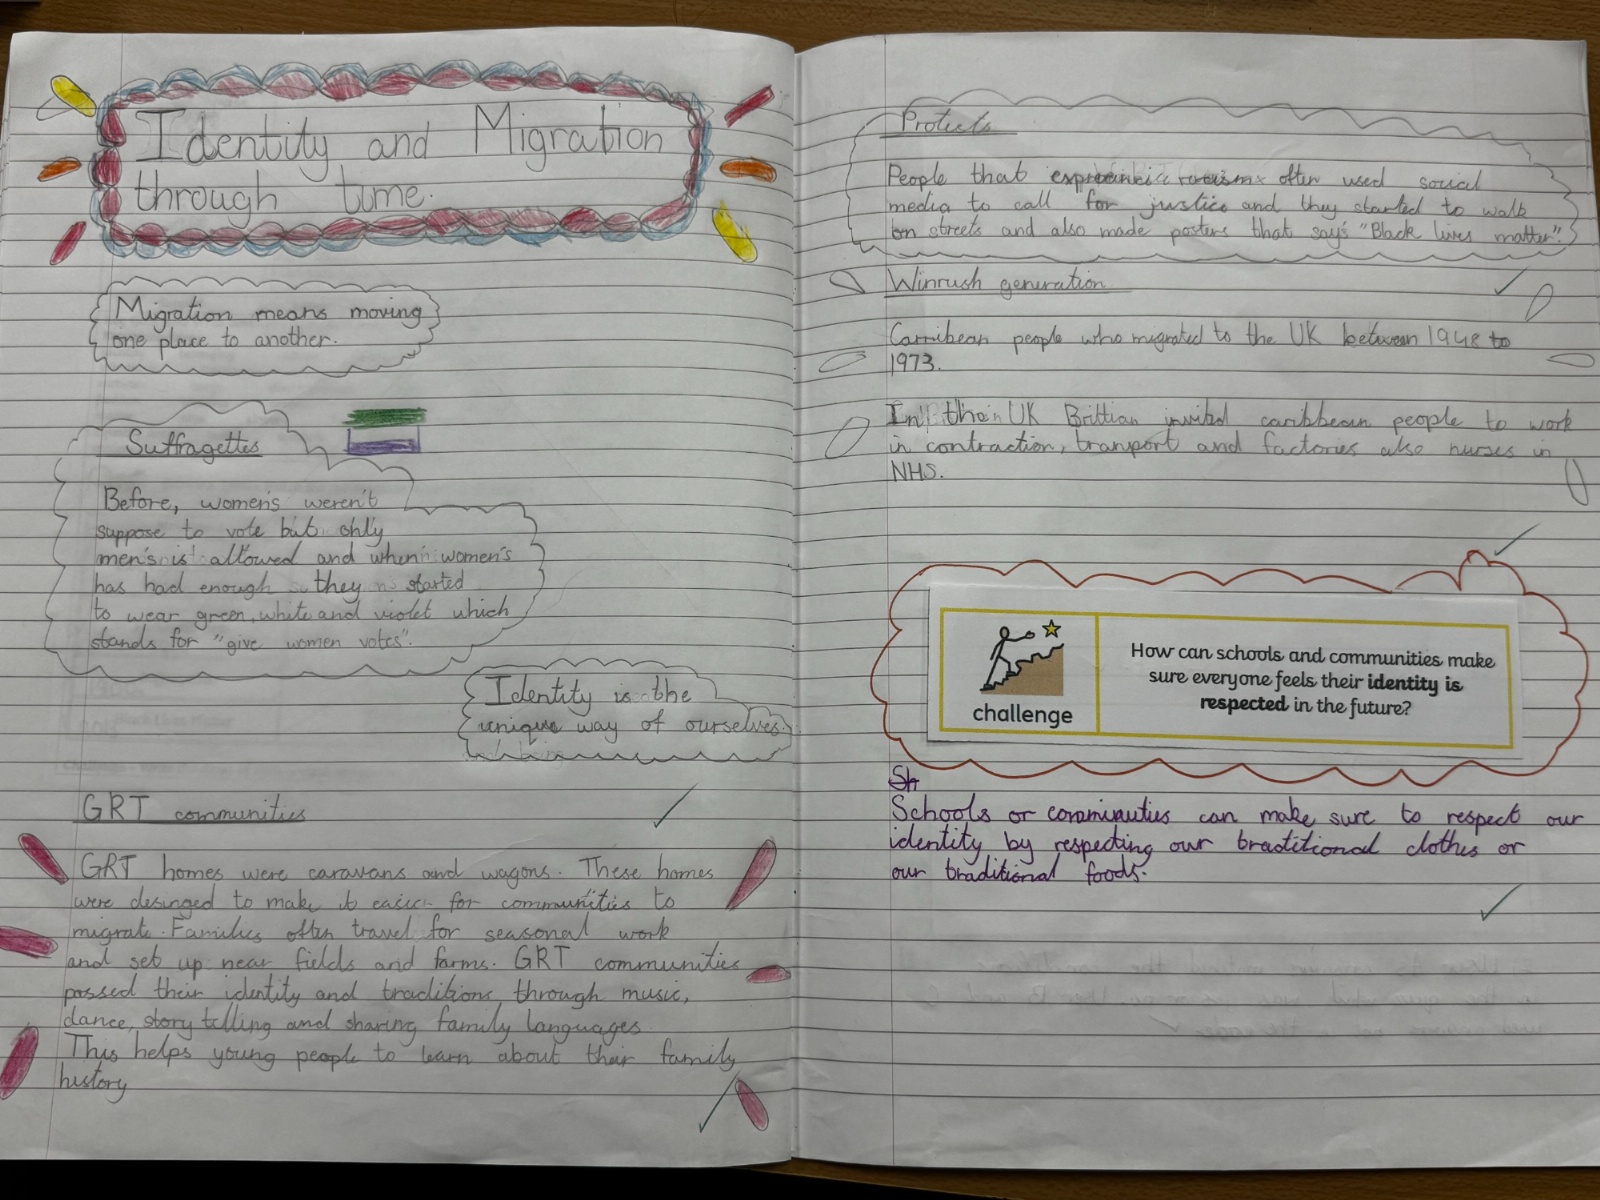 Identity and Migration
through time.
Migration means moving
one place to another.
Suffragettes
Before, women's weren't
suppose to vote but only
men's is allowed and when women's
has had enough they started
to wear green, white and violet which
stands for "give women votes".
Identity is the
unique way of ourselves.
being
GRT communities
GRT homes were caravans and wagons. These homes
were desinged to make it easier for communities to
migrate. Families often travel for seasonal work
and set up near fields and farms. GRT communities
passed their identity and traditions through music,
dance, story telling and sharing family languages.
This helps young people to learn about their family
history
Protects
People that often used social
media to call for justice and they started to walk
on streets and also made posters that say's "Black lives matter".
Winrush generation
Carribean people who migrated to the UK between 1948 to
1973.
In the UK Brittian invited caribbean people to work
in contraction, transport and factories also nurses in
NHS.
challenge
How can schools and communities make
sure everyone feels their identity is
respected in the future?
Sh
Schools or communities can make sure to respect our
identity by respecting our traditional clothes or
our traditional foods.